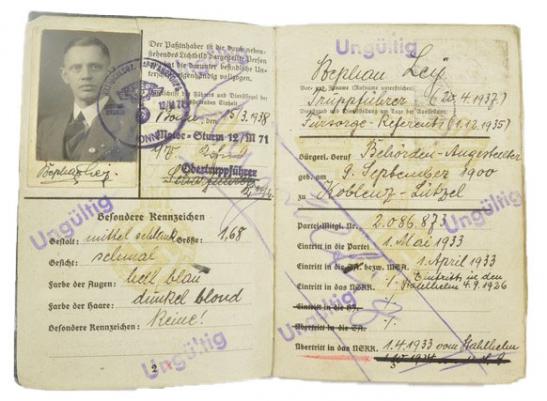 Der Paßinhaber ist die durch neben-
stehendes Lichtbild dargestellte Person
und hat die darunter befindliche Unter-
schrift eigenhändig vollzogen.
Unterschrift des Führers und Dienstsiegel der
Einheit
15/3. 1938
Motor-Sturm 12/M 71
Obertruppführer
Stephan Ley.
Ungültig
Besondere Kennzeichen
Gestalt: mittel schlank Größe: 1,68
Gesicht: schmal
Farbe der Augen: hell blau
Farbe der Haare: dunkel blond
Besondere Kennzeichen: Keine!
2
Ungültig
Ungültig
Stephan Ley
Vor- und Zuname
Truppführer (20.4.1937)
Dienstrang und Dienststellung am Tage der Ausstellung
Fürsorge-Referent (1.12.1935)
Bürgerl. Beruf Behörden-Angestellter
geb. am 9. September 1900
zu Koblenz-Lützel
Ungültig
Partei-Mitgl. Nr. 2.086.873
Eintritt in die Partei 1. Mai 1933
Eintritt in die SA. bezw. NSK. 1. April 1933
Eintritt in das NSKK. ./. Eintritt in den
Stahlhelm 4.9.1926
Eintritt in die ./.
Übertritt in die SA. ./.
Übertritt in das NSKK. 1.4.1933 vom Stahlhelm
Ungültig